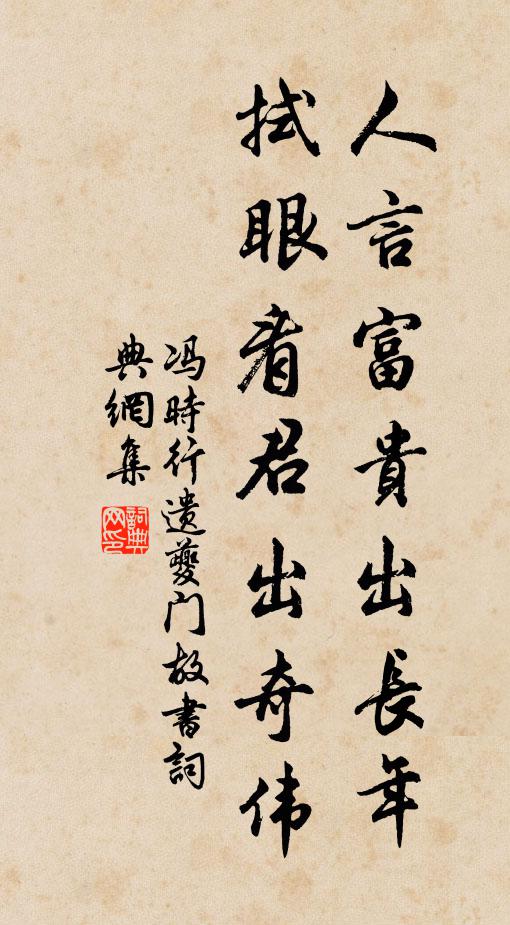 人言富貴出長年
拭眼看君出奇伟
冯時行遗夔门故書詞
典網集
詞典网印